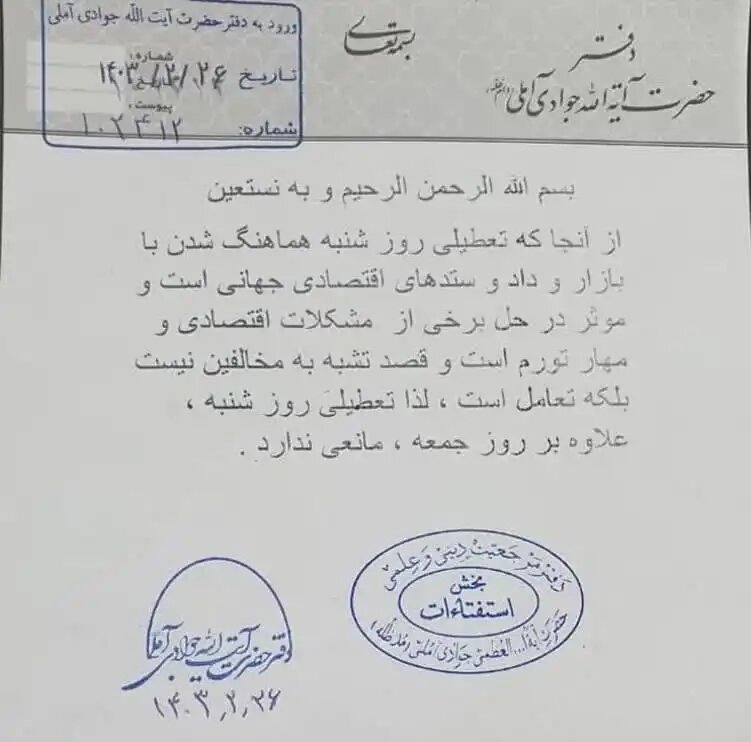 بسمه تعالی
دفتر
حضرت آیة الله جوادی آملی
ورود به دفتر حضرت آیت الله جوادی آملی
شماره:
تاریخ ۱۴۰۳/۲/۲۶
پیوست:
شماره: ۱۰۲۴۱۲
بسم الله الرحمن الرحیم و به نستعین
از آنجا که تعطیلی روز شنبه هماهنگ شدن با
بازار و داد و ستدهای اقتصادی جهانی است و
موثر در حل برخی از مشکلات اقتصادی و
مهار تورم است و قصد تشبه به مخالفین نیست
بلکه تعامل است ، لذا تعطیلی روز شنبه ،
علاوه بر روز جمعه ، مانعی ندارد .
دفتر مرجعیت دینی و علمی
بخش
استفتاءات
حضرت آیة ا... العظمی جوادی آملی (مد ظله)
دفتر حضرت آیت الله جوادی آملی
۱۴۰۳,۲,۲۶